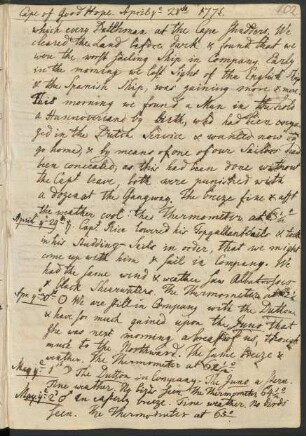 Cape of Good Hope. April ye 28th 1775.
which every Dutchman at the Cape shudders. We
cleared the Land before dark & found that we
were the best sailing Ship in Company. Early
in the morning we lost sight of the English Ship
& the Spanish Ship, was gaining more & more
This morning we found a Man in the hold
a Hannoverian by birth, who had been enga-
ged in the Dutch Service & wanted now to
go home, & by means of one of our Sailors had
been concealed; as this had been done without
the Capt. leave both were punished with
a dozen at the Gangway. The breeze fine & aft
the weather cool. the Thermometer at 63½°
April ye 29th Capt Price lowered his Topgallantsail & took
in his Studding-Sails in order, that we might
come up with him & sail in Company. We
had the same wind & weather saw Albatrosses
& black Shearwaters. The Thermometer
Apr. ye 30th We are still in Company with the Dutton
& have so much gained upon the Juno that
she was next morning abreast of us, though
much to the Northward. The same breeze &
weather. The Thermometer at
May ye 1st The Dutton in company. The Juno a stern.
Fine weather. No birds seen. The Thermometer
May ye 2d An easterly breeze. Fine weather, no birds
seen. The Thermometer at